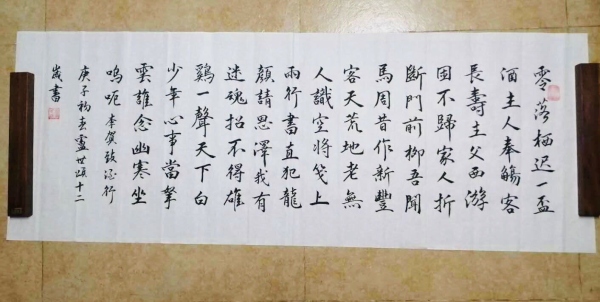 零落栖迟一盃
酒主人奉觴客
長壽主父西游
困不歸家人折
斷門前柳吾聞
馬周昔作新豐
客天荒地老無
人識空将笺上
兩行書直犯龍
顔請恩澤我有
迷魂招不得雄
鷄一聲天下白
少年心事當拏
雲誰念幽寒坐
嗚呃李賀致酒行
庚子初春盧世頌十二
歲書